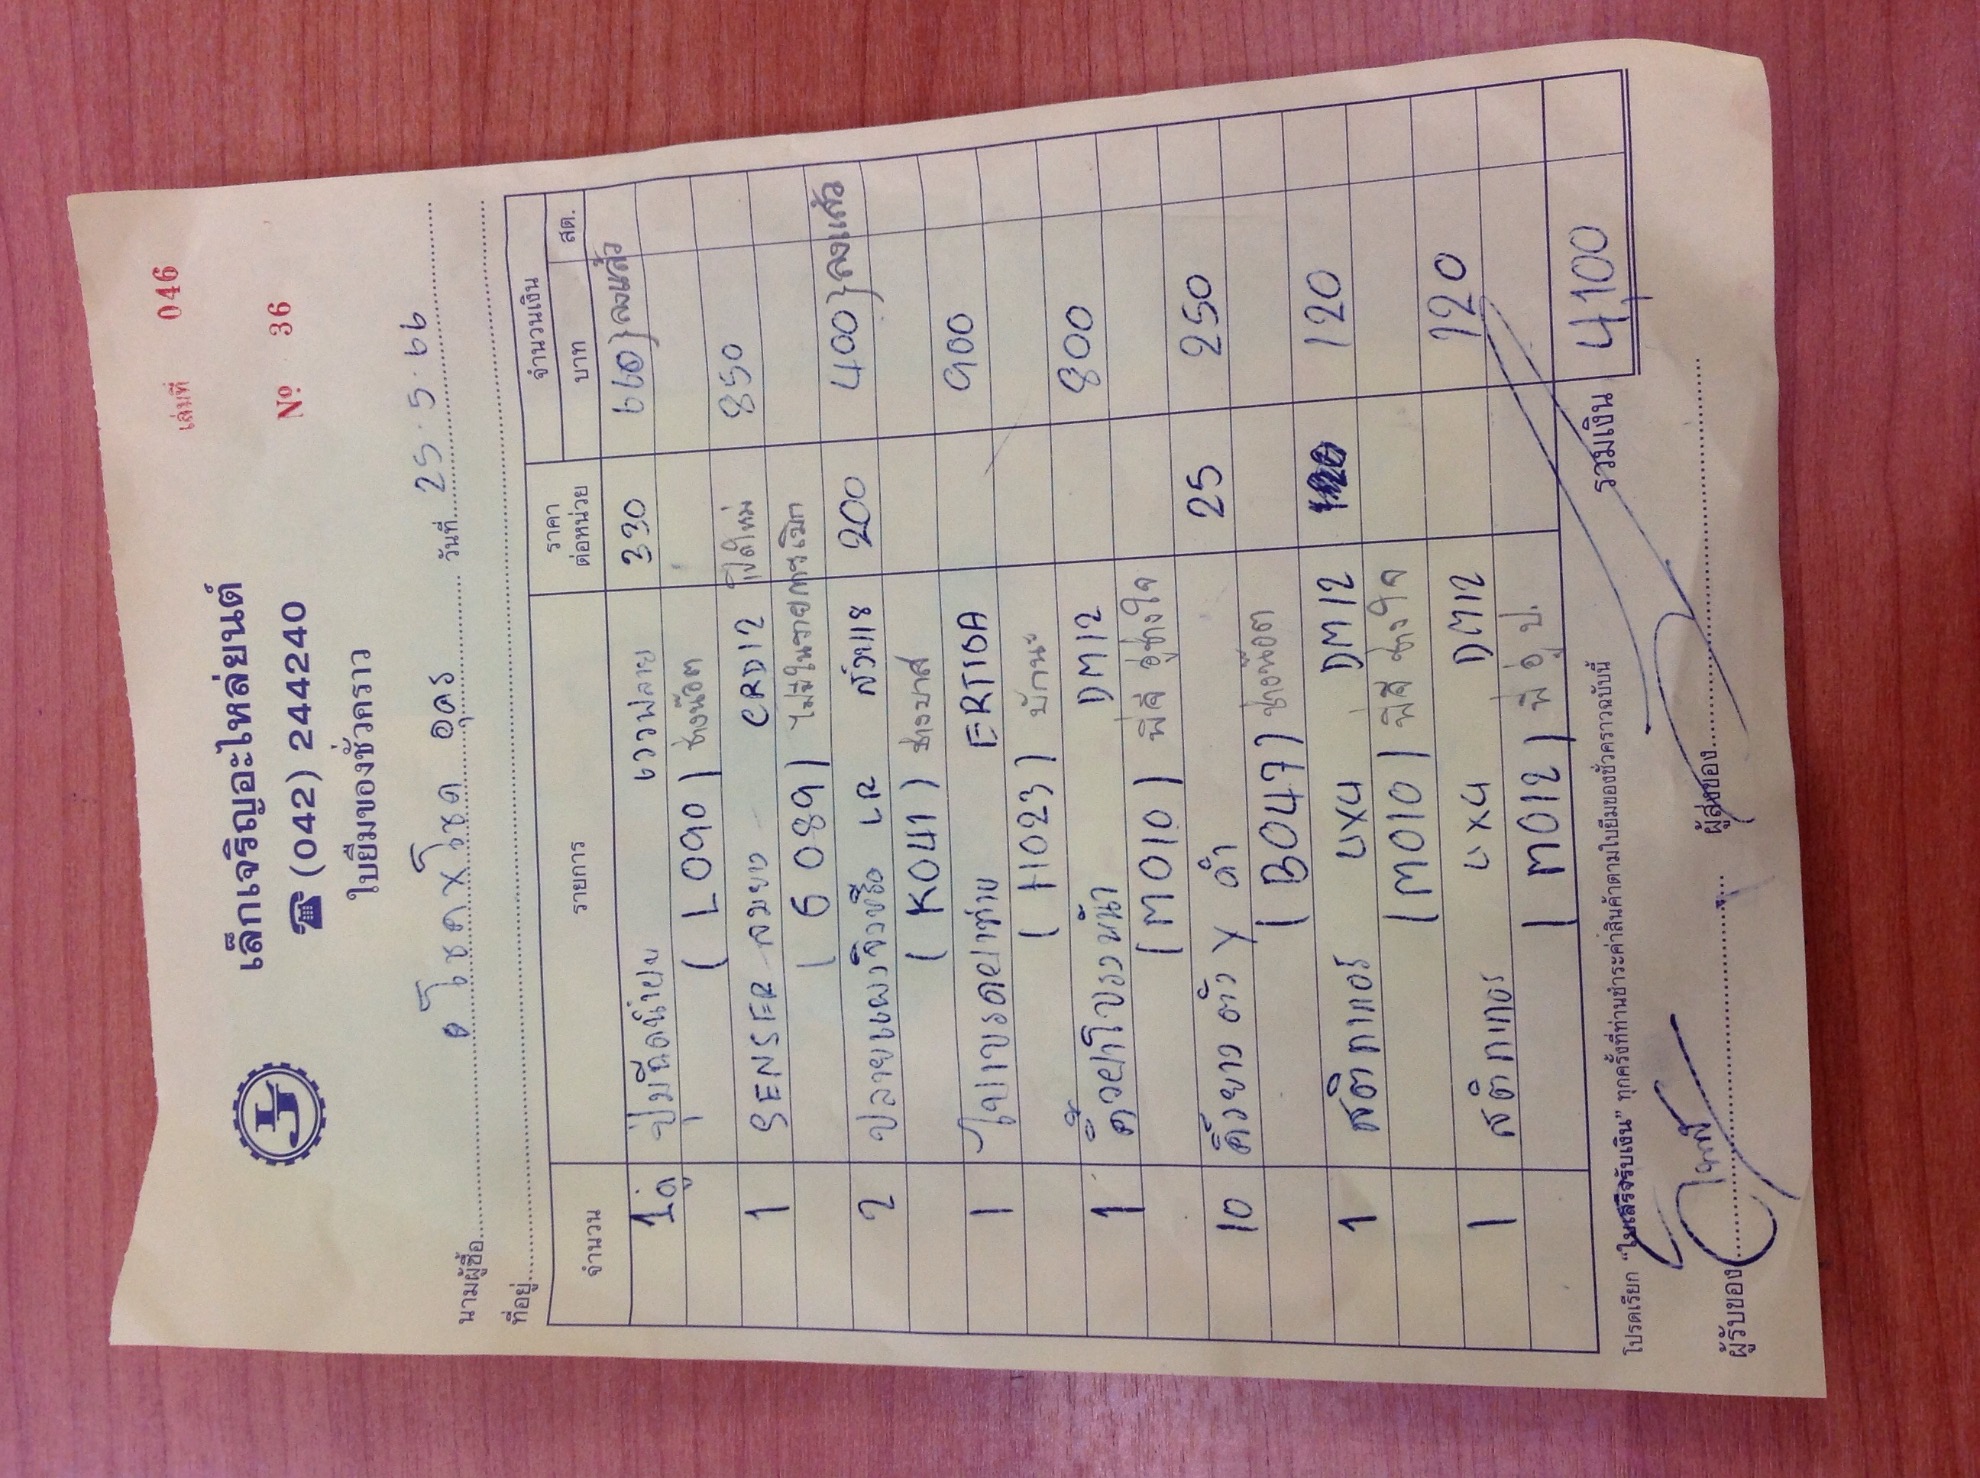 เล่มที่ 046
เล็กเจริญอะไหล่ยนต์
☎ (042) 244240
Nº 36
ใบยืมของชั่วคราว
นามผู้ซื้อ อ โชคXโชค อุดร วันที่ 25.5.66
ที่อยู่
จำนวน รายการ ราคาต่อหน่วย จำนวนเงิน
บาท สต.
1คู่ ปุ่มฉีดน้ำฝน เวฟลาย 330 660} ลงแล้ว
(L090) ช่างน๊อต
1 SENSER ลมยาง CRD12 850
(6089) ไม่มีในรายการเบิก
2 LR 200 400} ลงแล้ว
(K041)
1 ERTIGA 900
(H023)
1 DM12 800
(M010) พี่สี่ อู่ช่างใจ
10 ตัว Y ดำ 25 250
(B047) ช่างน๊อต
1 สติกเกอร์ 4X4 DM12 120
(M010) พี่สี่ ช่างใจ
1 สติกเกอร์ 4X4 DM12 120
(M012) พี่ อู ป.
รวมเงิน 4100
โปรดเรียก "ใบเสร็จรับเงิน" ทุกครั้งที่ท่านชำระค่าสินค้าตามใบยืมของชั่วคราวฉบับนี้
ผู้รับของ ผู้ส่งของ